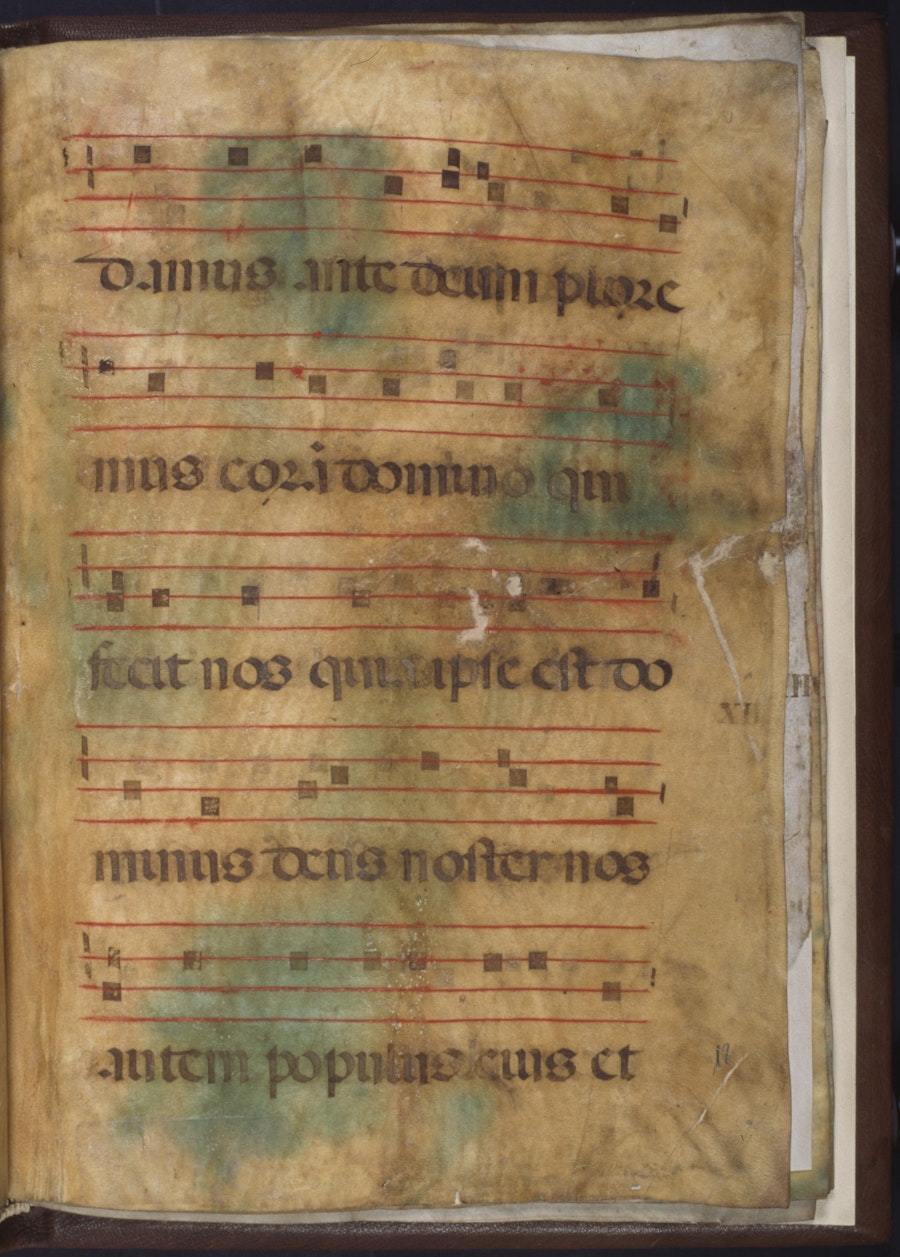 damus ante deum plore
mus corā domino qui
fecit nos quia ipse est do
XII
minus deus noster nos
autem populus eius et
12